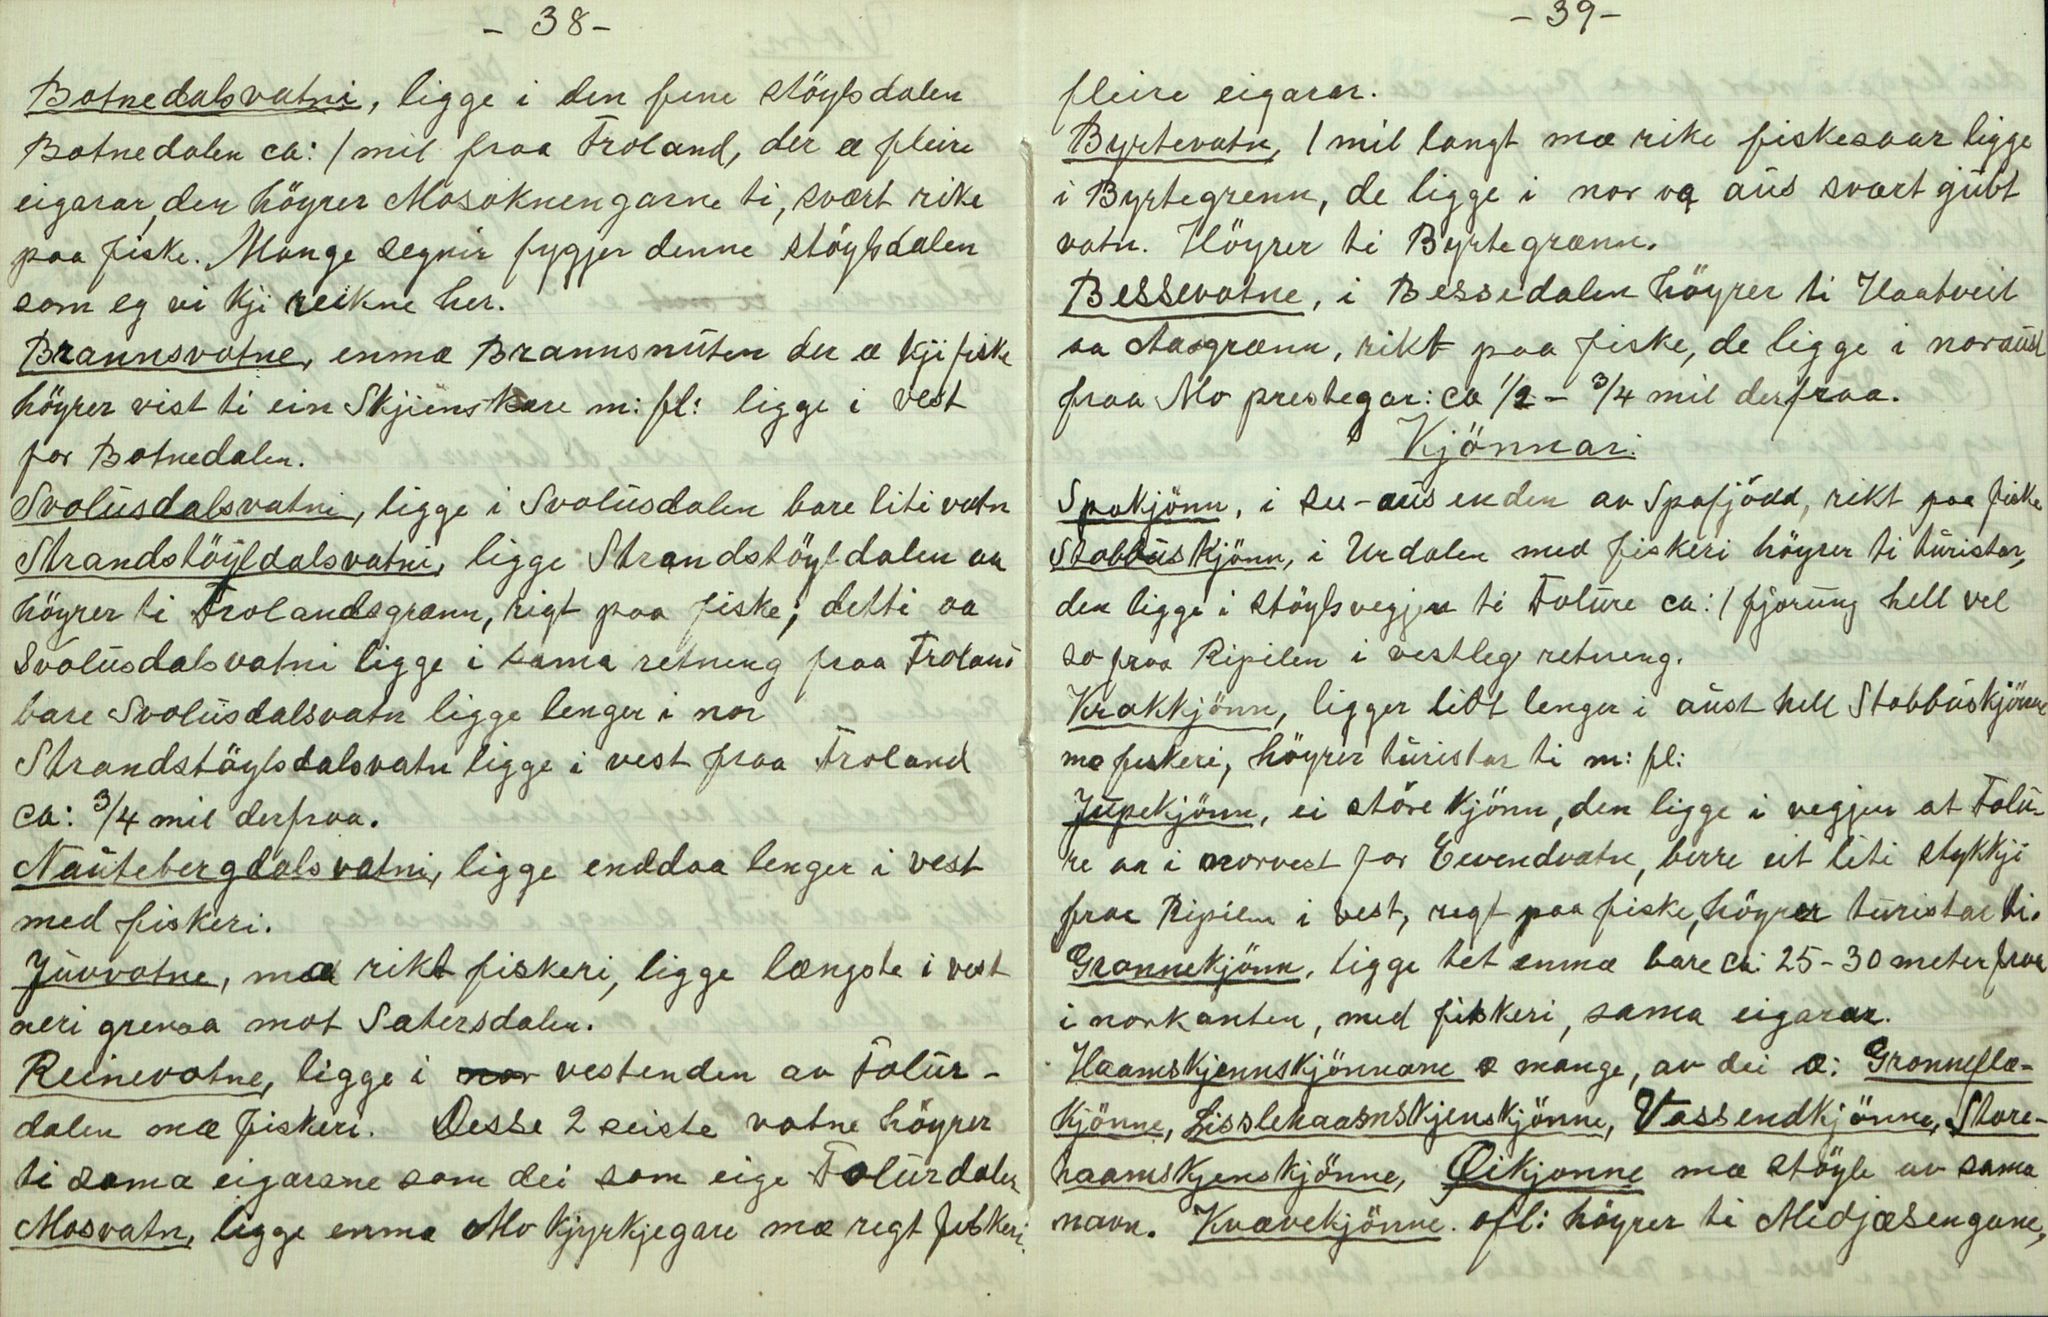 - 38 -
Botnedalsvatni, ligge i den fine stöylsdalen
Botnedalen ca: 1 mil fraa Froland, der æ fleire
eigarar, den höyrer Mosoknengarne ti, svært rike
paa fiske. Mange segnir fygjer denne stöylsdalen
som eg vi kji reikne her.
Brannsvatne, enmæ Brannsnuten der æ kji fiske
höyrer vist ti ein Skjienskare m: fl: ligge i vest
for Botnedalen.
Svolusdalsvatni, ligge i Svolusdalen bare liti vatn
Strandstöyldalsvatni, ligge Strandstöyldalen aa
höyrer ti Frolandsgrænn, rigt paa fiske; detti aa
Svolusdalsvatni ligge i sama retneng fraa Froland
bare Svolusdalsvatn ligge lenger i nor
Strandstöylsdalsvatn ligge i vest fraa Froland
ca: 3/4 mil derfraa.
Nautebergdalsvatni, ligge enddaa lenger i vest
med fiskeri.
Juvvatne, mæ rikt fiskeri, ligge længste i vest
neri grenaa mot Sætersdalen.
Reinevatne, ligge i nor vestenden av Folur-
dalen mæ fiskeri. Desse 2 seiste vatne höyrer
ti sama eigarane som dei som eige Folurdalen
Mosvatn, ligge enmæ Mo kjyrkjegare mæ regt fiskeri.
- 39 -
fleire eigarar.
Byrtevatn, 1 mil langt mæ rike fiskesaar ligge
i Byrtegrenn, de ligge i nor og aus svært gjubt
vatn. Höyrer ti Byrtegrænn.
Bessevatne, i Bessedalen höyrer ti Haatveit
aa Aasgrænn, rikt paa fiske, de ligge i noraust
fraa Mo prestegar: ca 1/2 - 3/4 mil derfraa.
Kjönnar.
Spakjönn, i su-aus enden av Spafjödd, rikt paa fiske
Stabbuskjönn, i Urdalen med fiskeri höyrer ti turistar,
den ligge i stöylsvegjen ti Folure ca: 1 fjorung hell vel
so fraa Ripilen i vestleg retneng.
Krakkjönn, ligger litt lenger i aust hell Stabbuskjönne
mæ fiskeri, höyrer turistar ti m: fl:
Jupekjönn, ei störe kjönn, den ligge i vegjen at Folu-
re aa i norvest for Eevendvatn, berre eit liti stykkji
fraa Ripilen i vest, regt paa fiske, höyrer turistar ti.
Grannekjönn, ligge tet enmæ bare ca: 25-30 meter fraa
i norkanten, med fiskeri, sama eigarar.
Haamskjennskjönnane æ mange, av dei æ: Grønneflæ-
kjönne, Lisslehaamskjenskjönne, Vassendkjönne, Store-
haamskjenskjönne, Øikjonne mæ stöyle av sama
navn. Kvævekjönne. ofl: höyrer ti Midjæsengane,